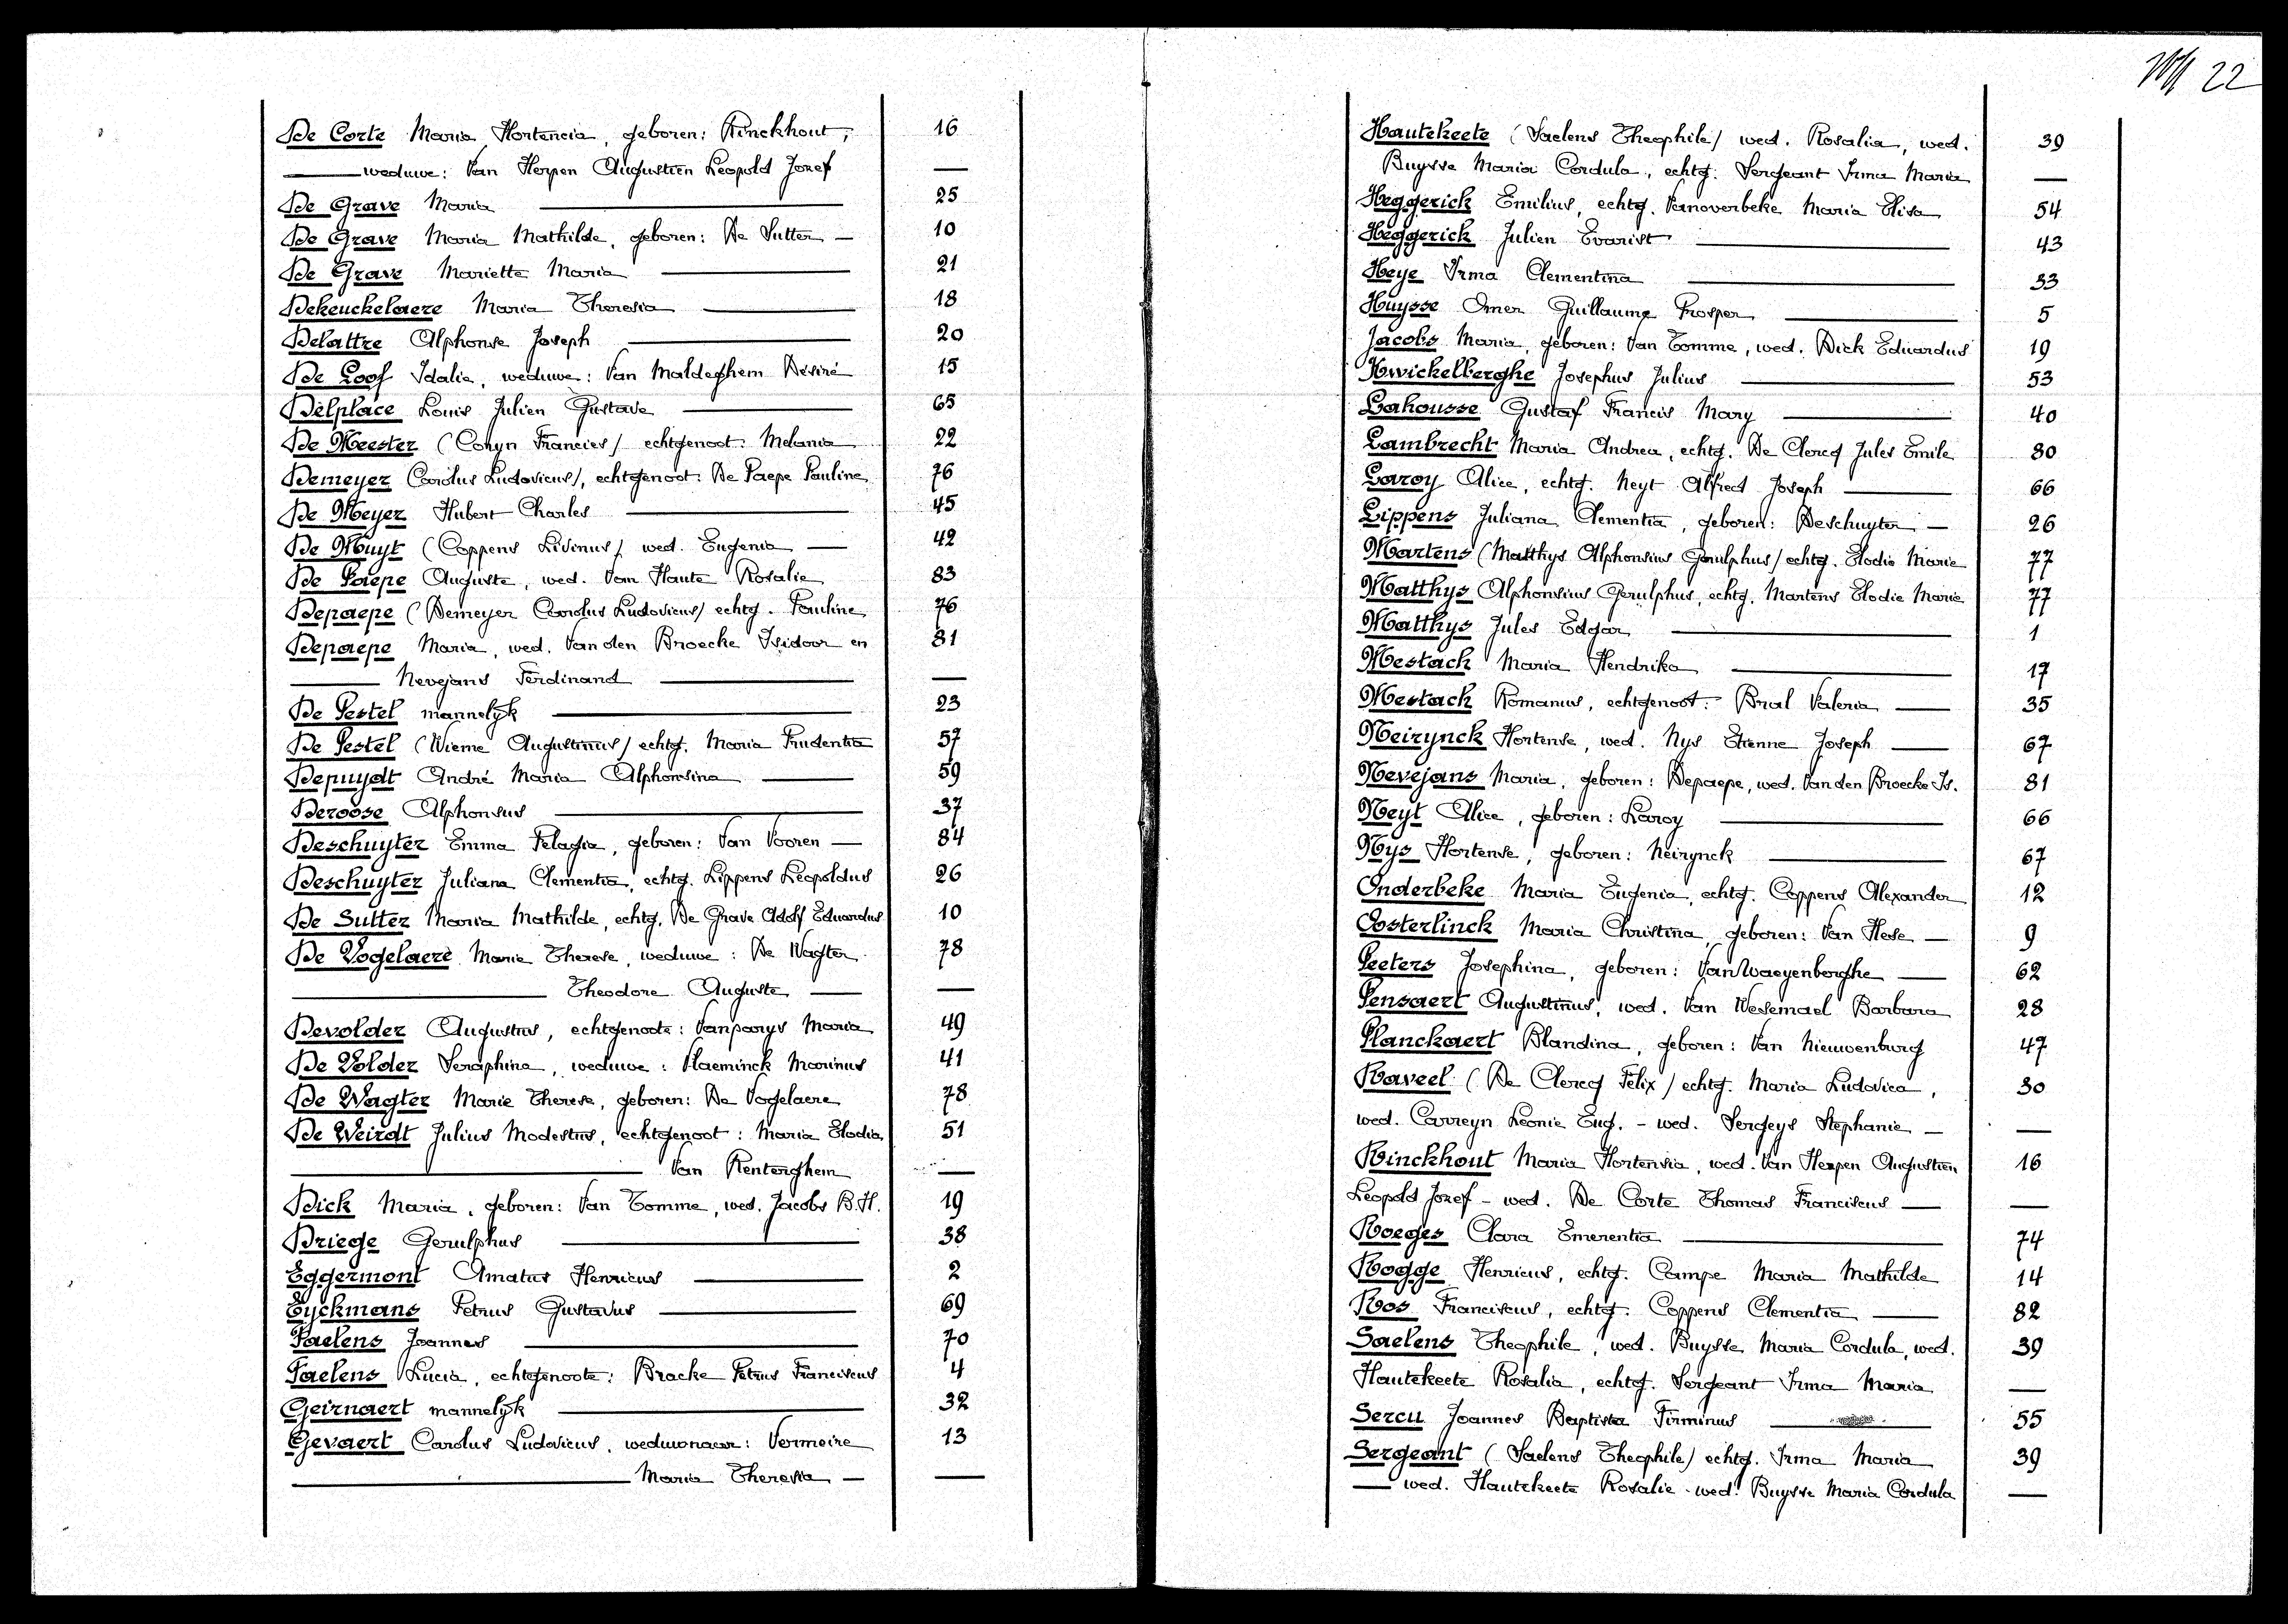 De Corte Maria Hortencia, geboren: Rinckhout, 16
weduwe: Van Herpen Augustien Leopold Jozef —
De Grave Maria 25
De Grave Maria Mathilde, geboren: De Sutter — 10
De Grave Mariette Maria 21
Dekeuckelaere Maria Theresia 18
Delattre Alphonse Joseph 20
De Loof Idalie, weduwe: Van Maldeghem Désiré 15
Delplace Louis Julien Gustave 65
De Meester (Conyn Francies) echtgenoot: Melania 22
Demeyer Carolus Ludovicus), echtgenoot: De Paepe Pauline 76
De Meyer Hubert Charles 45
De Muyt (Coppens Livinus) wed. Eugenia — 42
De Paepe Auguste, wed. Van Haute Rosalie 83
Depaepe (Demeyer Carolus Ludovicus) echtg. Pauline 76
Depaepe Maria, wed. Van den Broecke Isidoor en 81
Nevejans Ferdinand —
De Pestel mannelyk 23
De Pestel (Wieme Augustinus) echtg. Maria Prudentia 57
Depuydt André Maria Alphonsina 59
Deroose Alphonsus 37
Deschuyter Emma Pelagia, geboren: Van Vooren — 84
Deschuyter Juliana Clementia, echtg. Lippens Leopoldus 26
De Sutter Maria Mathilde, echtg. De Grave Adolf Eduardus 10
De Vogelaere Marie Therese, weduwe: De Wagter 78
Theodore Auguste — —
Devolder Augustus, echtgenoote: Vanparys Maria 49
De Volder Seraphine, weduwe: Haeminck Marinus 41
De Wagter Marie Therese, geboren: De Vogelaere 78
De Weirdt Julius Modestus, echtgenoot: Maria Elodia 51
Van Renterghem —
Dick Maria, geboren: Van Tomme, wed. Jacobs B.H. 19
Driege Gerulphus 38
Eggermont Amatus Henricus 2
Eyckmans Petrus Gustavus 69
Faelens Joannes 70
Faelens Lucia, echtgenoote: Bracke Petrus Franciscus 4
Geirnaert mannelyk 32
Gevaert Carolus Ludovicus, weduwenaar: Vermeire 13
Maria Theresia — —
22
Hautekeete (Saelens Theophile) wed. Rosalia, wed. 39
Buysse Maria Cordula, echtg: Sergeant Irma Maria —
Heggerick Emilius, echtg. Vanoverbeke Maria Elisa 54
Heggerick Julien Evarist 43
Heye Irma Clementina 33
Huysse Omer Guillaume Prosper 5
Jacobs Maria, geboren: Van Tomme, wed. Dick Eduardus 19
Kwickelberghe Josephus Julius 53
Lahousse Gustaf Francis Mary 40
Lambrecht Maria Andrea, echtg. De Clercq Jules Emile 80
Laroy Alice, echtg. Neyt Alfred Joseph 66
Lippens Juliana Clementia, geboren: Deschuyter — 26
Martens (Matthys Alphonsius Gerulphus) echtg. Elodie Marie 77
Matthys Alphonsius Gerulphus, echtg. Martens Elodie Marie 77
Matthys Jules Edgar 1
Mestach Maria Hendrika 17
Mestach Romanus, echtgenoot: Bral Valeria — 35
Neirynck Hortense, wed. Nys Etienne Joseph — 67
Nevejans Maria, geboren: Depaepe, wed. Van den Broecke Is. 81
Neyt Alice, geboren: Laroy 66
Nys Hortense, geboren: Neirynck 67
Onderbeke Maria Eugenia, echtg. Coppens Alexander 12
Oosterlinck Maria Christina, geboren: Van Hese — 9
Peeters Josephina, geboren: Van Waeyenberghe — 62
Pensaert Augustinus, wed. Van Wesemael Barbara 28
Planckaert Blandina, geboren: Van Nieuwenburg 47
Raveel (De Clercq Felix) echtg. Maria Ludovica, 30
wed. Carreyn Leonie Eug. - wed. Sergeys Stephanie — —
Rinckhout Maria Hortensia, wed. Van Herpen Augustien 16
Leopold Jozef - wed. De Corte Thomas Franciscus — —
Roeges Clara Emerentia 74
Rogge Henricus, echtg. Campe Maria Mathilde 14
Ros Franciscus, echtg. Coppens Clementia — 82
Saelens Theophile, wed. Buysse Maria Cordula, wed. 39
Hautekeete Rosalia, echtg. Sergeant Irma Maria —
Sercu Joannes Baptista Firminus 55
Sergeant (Saelens Theophile) echtg. Irma Maria 39
— wed. Hautekeete Rosalie - wed. Buysse Maria Cordula —